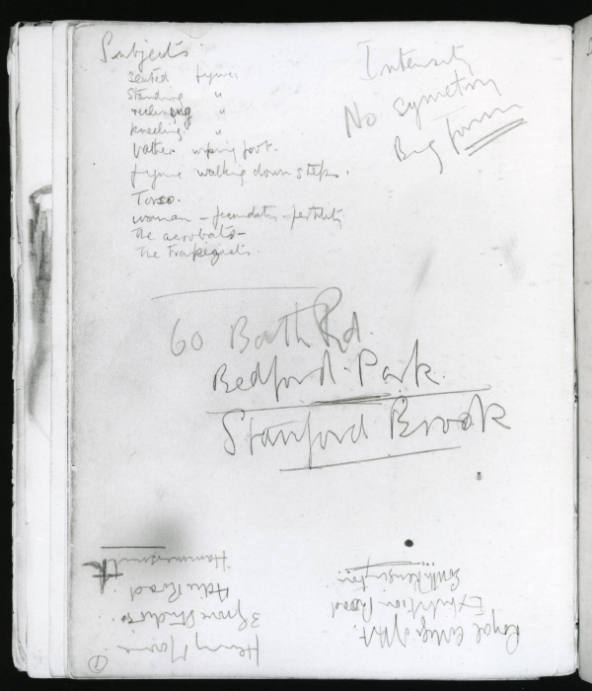 Subjects
seated figure
standing "
reclining "
kneeling "
bather wiping foot.
figure walking down steps.
Torso.
woman – fecundity – fertility
The acrobats –
The Trapezists.
Intensity
No symetry
Big forms
60 Bath Rd.
Bedford Park.
Stamford Brook
Henry Moore
3 Grove Studios
Adie Road
Hammersmith
Royal College of Art.
Exhibition Road
South Kensington
1